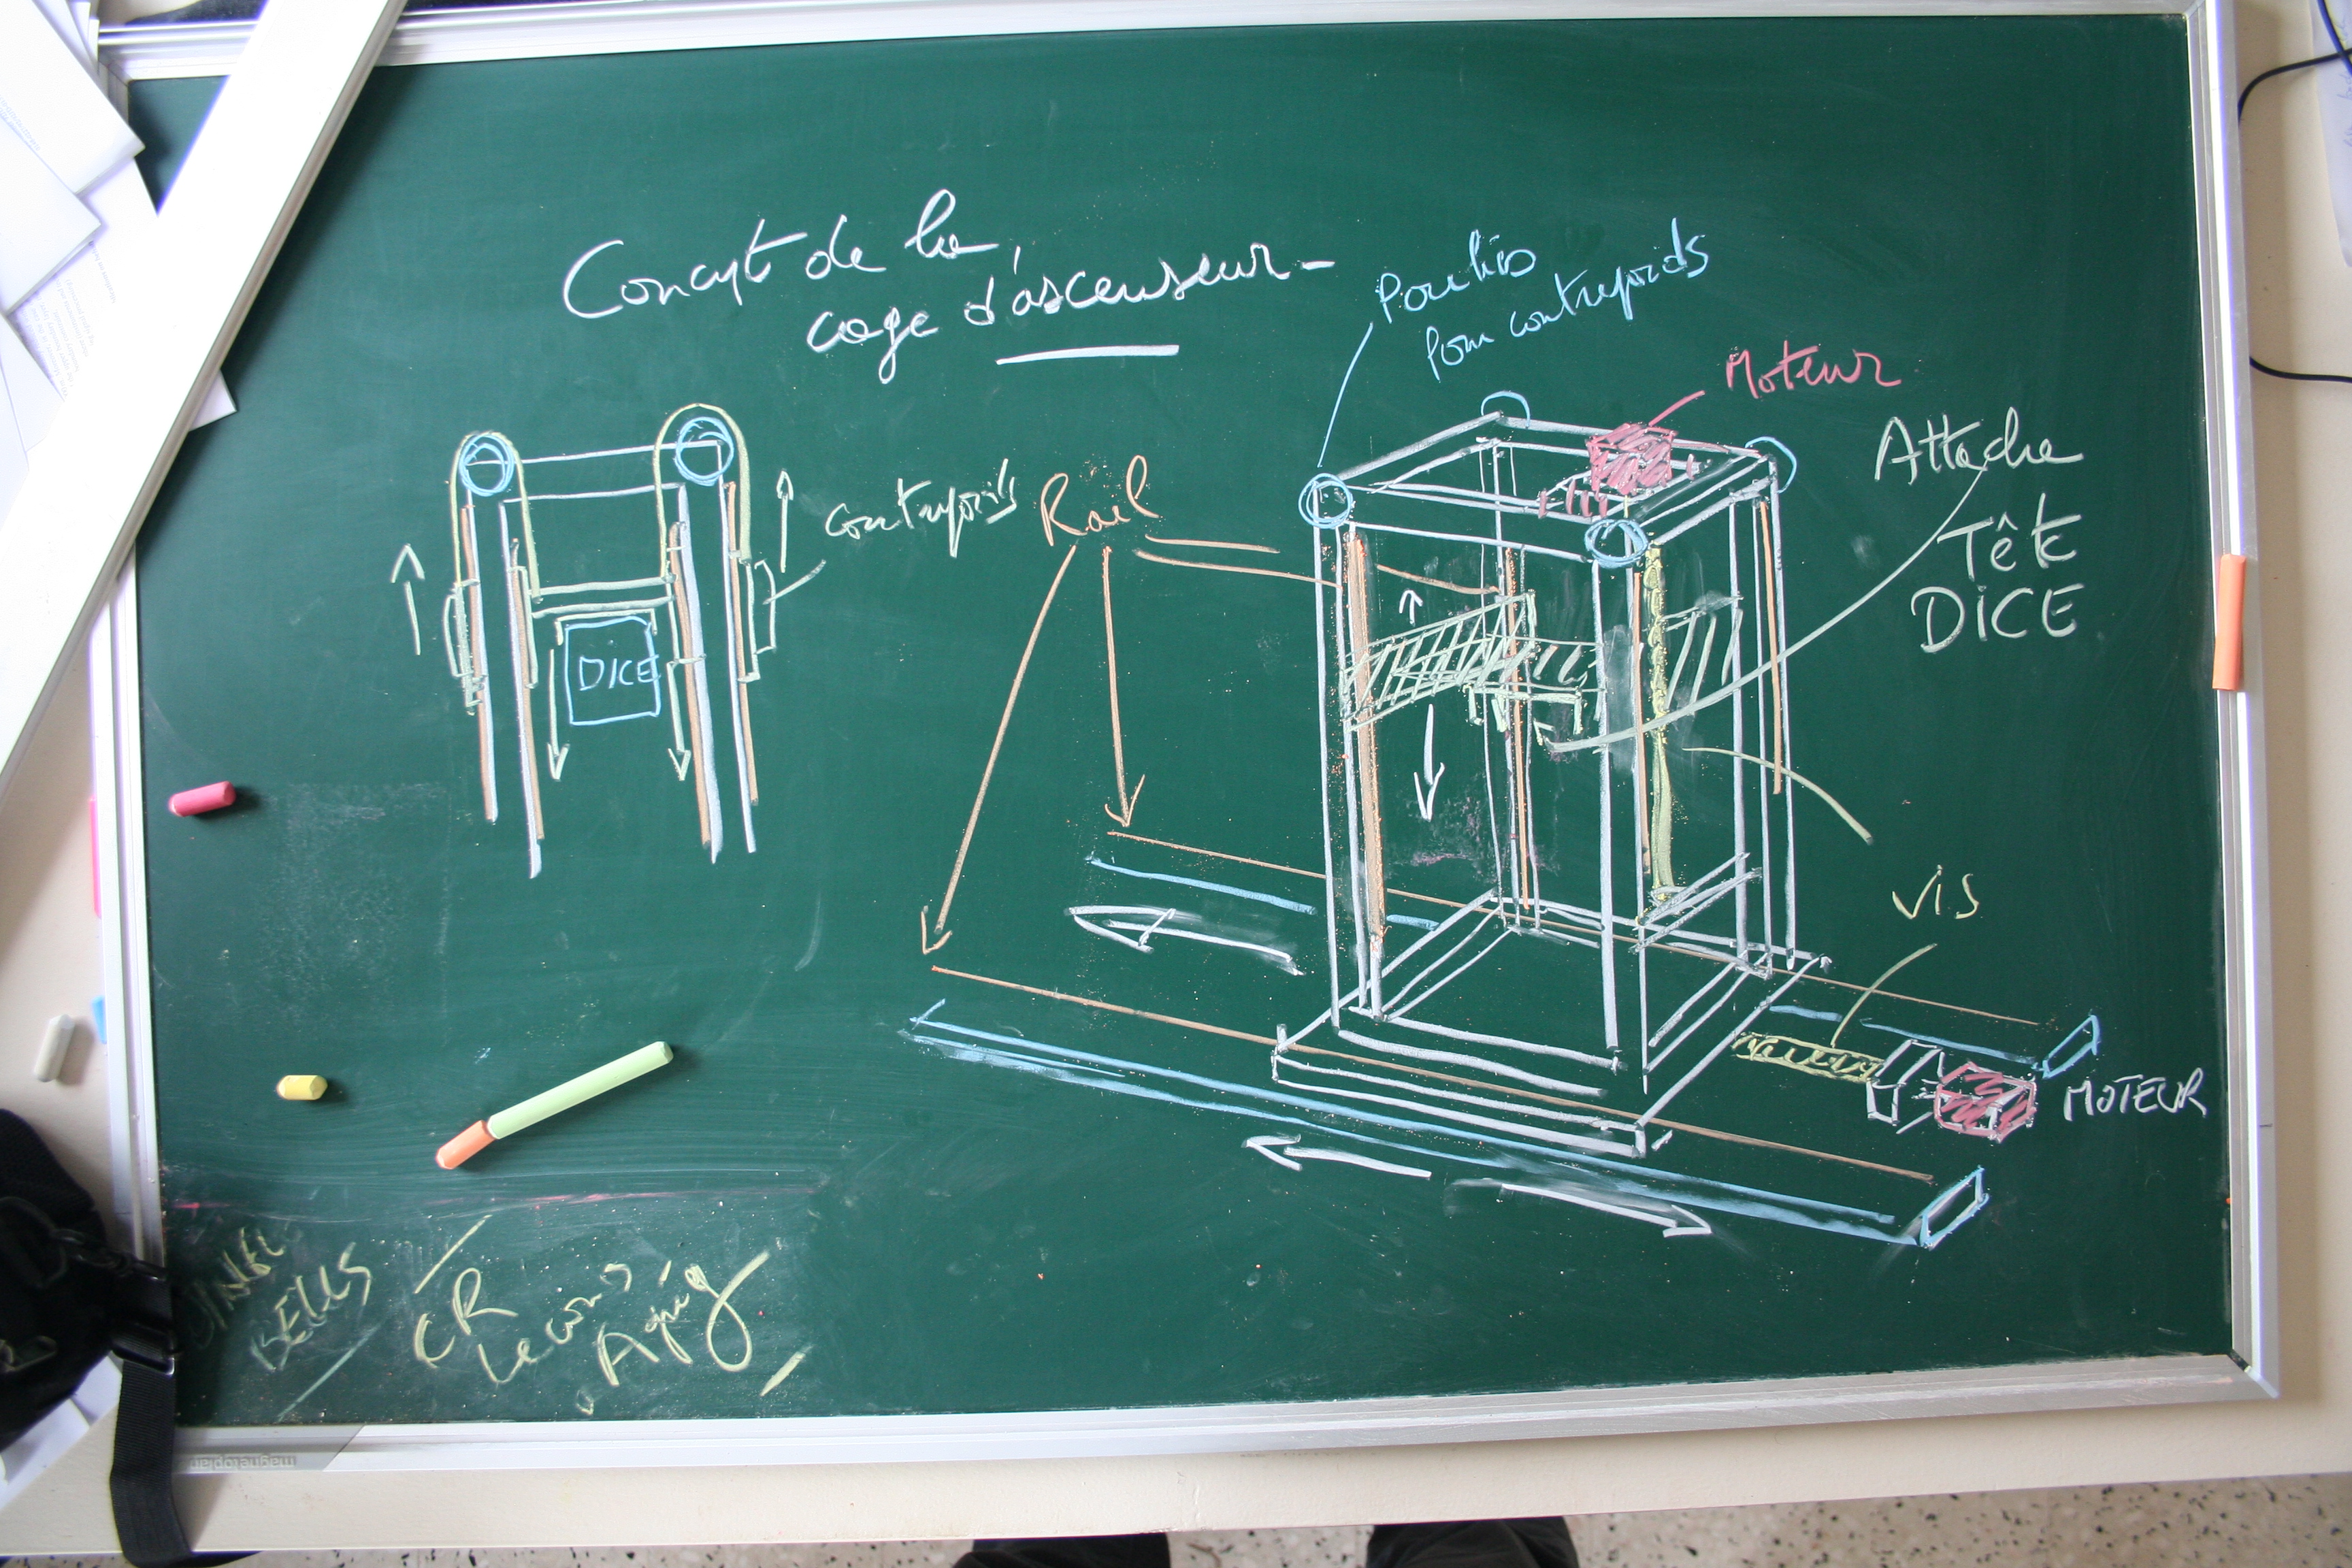 Concept de la
cage d'ascenseur-
Poulies
Pour contrepoids
Moteur
Attache
Tête
DICE
contrepoids
Rail
DICE
vis
MOTEUR
JINGEL
BELLS
CR
Lecons
Aging
magnetoplan